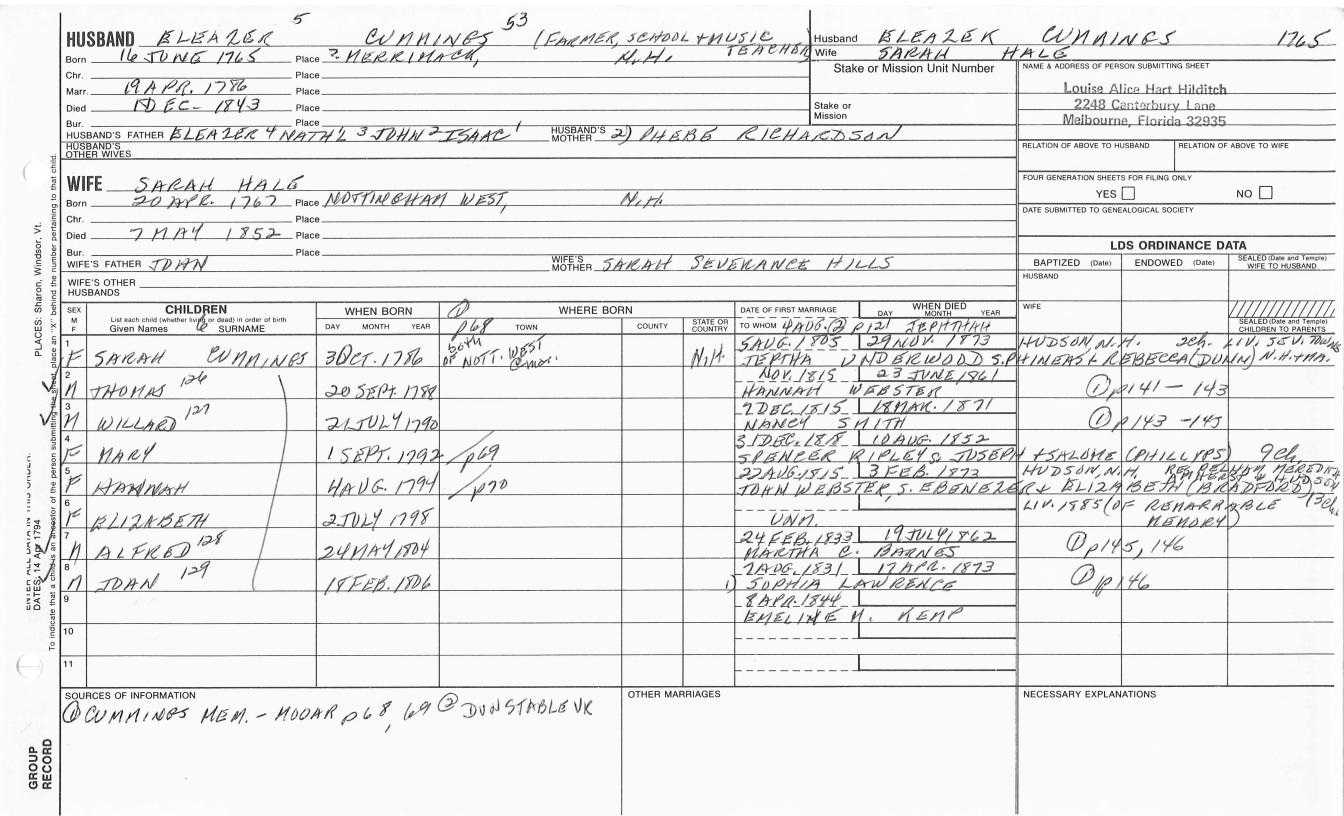 5 53
HUSBAND ELEAZER CUMMINGS (FARMER, SCHOOL + MUSIC TEACHER)
Born 16 JUNE 1765 Place ? MERRIMACK, N.H.
Chr. Place
Marr. 19 APR. 1786 Place
Died DEC- 1843 Place
Bur. Place
HUSBAND'S FATHER ELEAZER 4 NATH'L 3 JOHN 2 ISAAC 1 HUSBAND'S MOTHER 2) PHEBE RICHARDSON
HUSBAND'S OTHER WIVES
Husband ELEAZER CUMMINGS 1765
Wife SARAH HALE
Stake or Mission Unit Number
Stake or Mission
NAME & ADDRESS OF PERSON SUBMITTING SHEET
Louise Alice Hart Hilditch
2248 Canterbury Lane
Melbourne, Florida 32935
RELATION OF ABOVE TO HUSBAND RELATION OF ABOVE TO WIFE
FOUR GENERATION SHEETS FOR FILING ONLY
YES NO
DATE SUBMITTED TO GENEALOGICAL SOCIETY
WIFE SARAH HALE
Born 20 APR. 1767 Place NOTTINGHAM WEST, N.H.
Chr. Place
Died 7 MAY 1852 Place
Bur. Place
WIFE'S FATHER JOHN WIFE'S MOTHER SARAH SEVERANCE HILLS
WIFE'S OTHER HUSBANDS
LDS ORDINANCE DATA
BAPTIZED (Date) ENDOWED (Date) SEALED (Date and Temple) WIFE TO HUSBAND
HUSBAND
WIFE
SEALED (Date and Temple) CHILDREN TO PARENTS
SEX M F
CHILDREN
List each child (whether living or dead) in order of birth
Given Names 6 SURNAME
WHEN BORN
DAY MONTH YEAR
① p68 WHERE BORN
TOWN COUNTY STATE OR COUNTRY
DATE OF FIRST MARRIAGE WHEN DIED
DAY MONTH YEAR
TO WHOM 4 AUG. ② p121 JEPHTHAH
1 F SARAH CUMMINGS 3 OCT. 1786 both OF NOTT. WEST @ mar. N.H. 5 AUG. 1805 29 NOV. 1873 HUDSON N.H. 2ch. LIV. SEV. TOWNS
JEPTHA UNDERWOOD S. PHINEAS & REBECCA (DUNN) N.H. + MA.
2 M THOMAS 126 20 SEPT. 1788 NOV. 1815 23 JUNE 1861
HANNAH WEBSTER ① p141 - 143
3 M WILLARD 127 21 JULY 1790 7 DEC. 1815 18 MAR. 1871
NANCY SMITH ① p143 - 145
4 F MARY 1 SEPT. 1792 p69 31 DEC. 1818 10 AUG. 1852
SPENCER RIPLEY S. JOSEPH + SALOME (PHILLIPS) 9ch.
5 F HANNAH 4 AUG. 1794 p70 22 AUG. 1815 3 FEB. 1873 HUDSON, N.H. RES. PELHAM, MEREDITH, AMHERST & HUDSON
JOHN WEBSTER, S. EBENEZER & ELIZABETH (BRADFORD) 13ch.
6 F ELIZABETH 2 JULY 1798 UNM. LIV. 1885 (OF REMARRABLE MEMORY)
7 M ALFRED 128 24 MAY 1804 24 FEB. 1833 19 JULY 1862
MARTHA C. BARNES ① p145, 146
8 M JOHN 129 18 FEB. 1806 7 AUG. 1831 17 APR. 1873
1) SOPHIA LAWRENCE ① p146
9 8 APR. 1844
EMELINE M. KEMP
10
11
SOURCES OF INFORMATION
① CUMMINGS MEM. - MOOAR p68, 69 ② DUNSTABLE VR
OTHER MARRIAGES
NECESSARY EXPLANATIONS
PLACES: Sharon, Windsor, Vt.
ENTER ALL DATA IN THIS ORDER:
DATES: 14 Apr 1794
To indicate that a child is an ancestor of the person submitting the sheet, place an "X" behind the number pertaining to that child.
GROUP RECORD